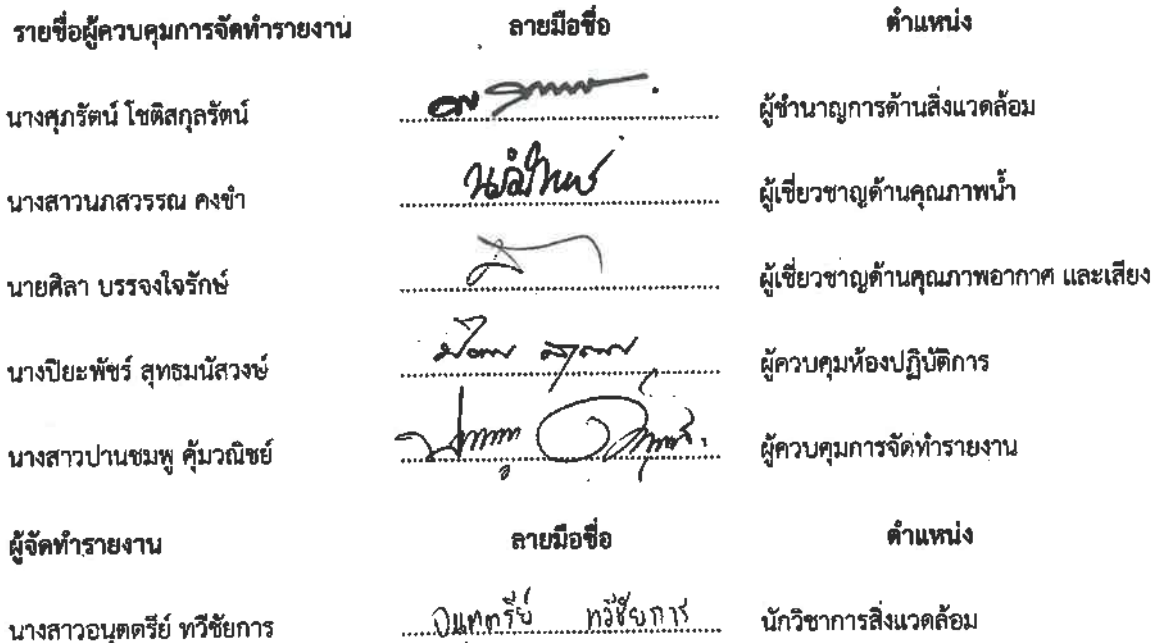 รายชื่อผู้ควบคุมการจัดทำรายงาน ลายมือชื่อ ตำแหน่ง
นางศุภรัตน์ โชติสกุลรัตน์ ผู้ชำนาญการด้านสิ่งแวดล้อม
นางสาวนภสวรรณ คงขำ ผู้เชี่ยวชาญด้านคุณภาพน้ำ
นายศิลา บรรจงใจรักษ์ ผู้เชี่ยวชาญด้านคุณภาพอากาศ และเสียง
นางปิยะพัชร์ สุทธมนัสวงษ์ ผู้ควบคุมห้องปฏิบัติการ
นางสาวปานชมพู คุ้มวณิชย์ ผู้ควบคุมการจัดทำรายงาน
ผู้จัดทำรายงาน ลายมือชื่อ ตำแหน่ง
นางสาวอนุตตรีย์ ทวีชัยการ อนุตตรีย์ ทวีชัยการ นักวิชาการสิ่งแวดล้อม